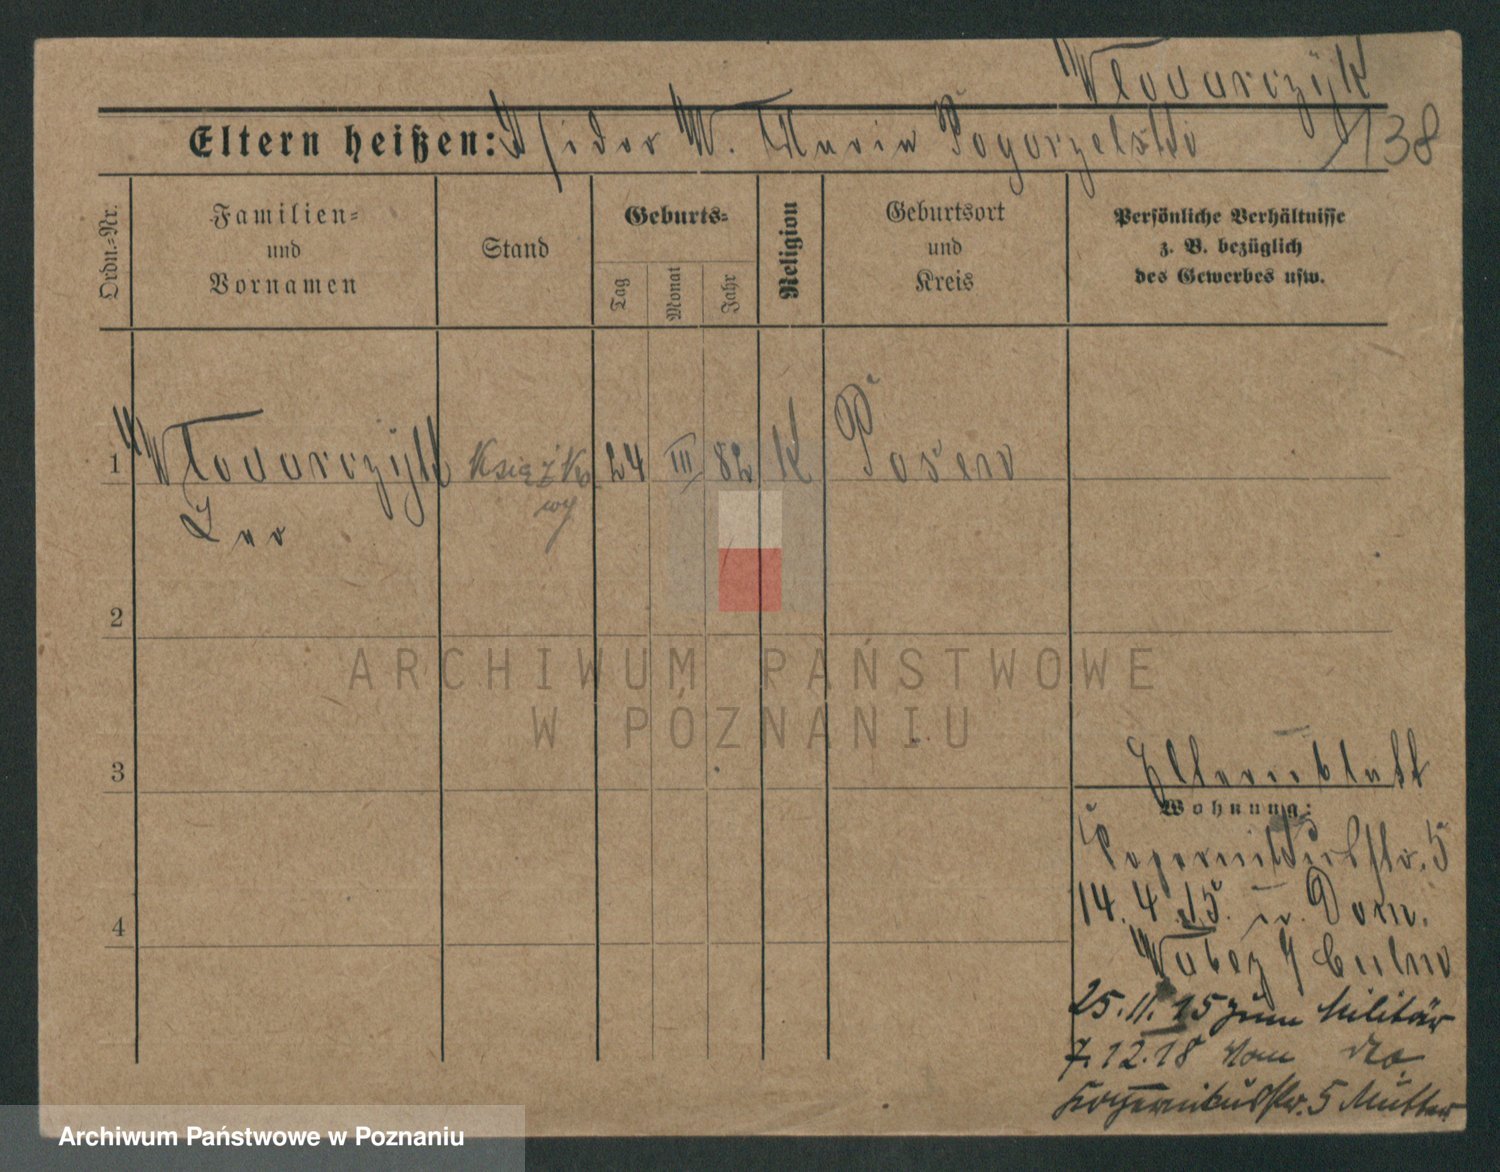 Włodarczyk
138
Eltern heißen: Isidor W. Maria Pogorzelski
Ordn.-Nr.
Familien-
und
Vornamen
Stand
Geburts-
Tag
Monat
Jahr
Religion
Geburtsort
und
Kreis
Persönliche Verhältnisse
z. B. bezüglich
des Gewerbes usw.
1
Włodarczyk
Leo
Książko
wy
24
III
82
K
Posen
2
3
4
ARCHIWUM PAŃSTWOWE
W POZNANIU
Elternblatt
Wohnung:
Kopernikusstr. 5
14. 4. 15. Dom.
25. 11. 15 zum Militär
7. 12. 18 von
Kopernikusstr. 5 Mutter
Archiwum Państwowe w Poznaniu